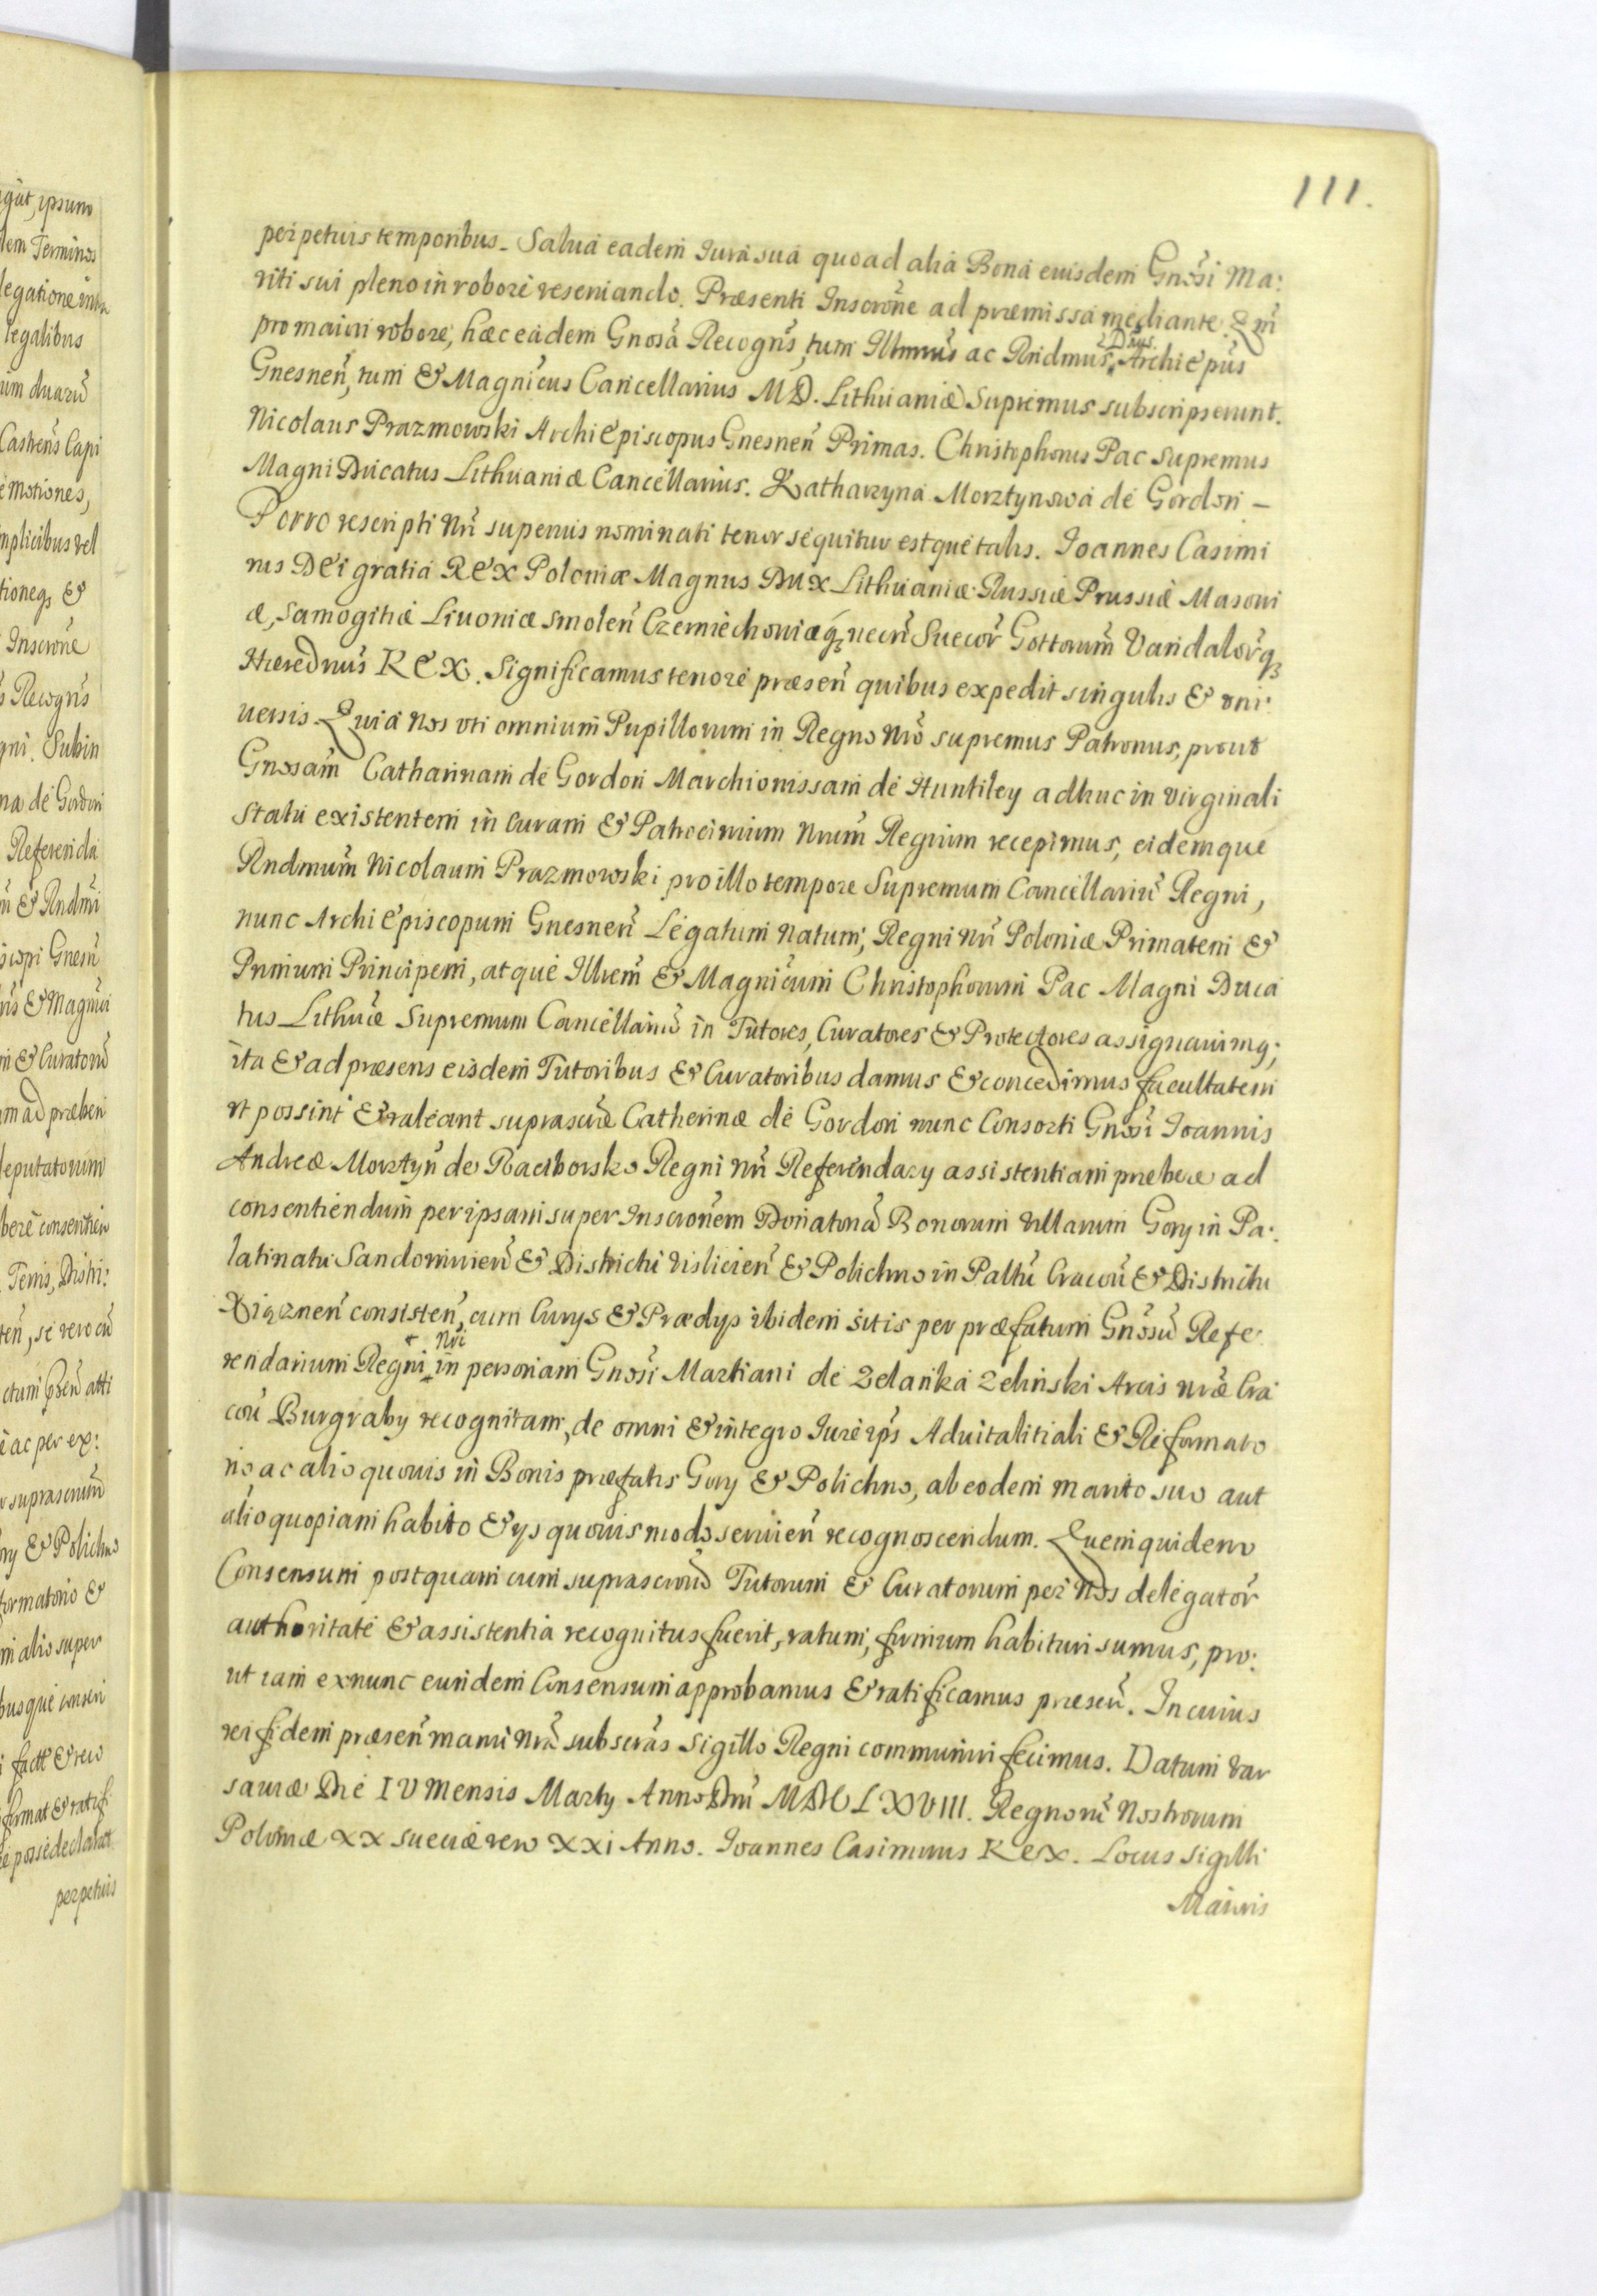 111.
perpetuis temporibus. Salua eadem Iura sua quoad alia Bona eiusdem Gnosi Ma:
riti sui pleno in robore reseruando. Præsenti Inscrone ad præmissa mediante. Qm
pro maiori robore, hæc eadem Gnosa Recogns, tum Illmus ac Rndmus Dnus. Archiepus
Gnesnen, tum & Magnicus Cancellarius M D. Lithuaniæ Supremus subscripserunt.
Nicolaus Prazmowski Archiepiscopus Gnesnen Primas. Christophorus Pac Supremus
Magni Ducatus Lithuaniæ Cancellarius. Katharzyna Morztynowa de Gordon –
Porro rescripti nri superius nominati tenor sequitur estque talis. Joannes Casimi
rus Dei gratia Rex Poloniæ Magnus Dux Lithuaniæ Russiæ Prussiæ Masoui
æ, Samogitiæ Liuoniæ Smolen Czerniechouiæq3 necn Suecor Gottorum Vandalorq3
Hæredrius Rex. Significamus tenore præsen quibus expedit singulis & vni:
uersis. Quia nos vti omnium Pupillorum in Regno nro supremus Patronus, prout
Gnosam Catharinam de Gordon Marchionissam de Huntiley adhuc in virginali
statu existentem in curam & Patrocinium nrum Regium recepimus, eidemque
Rndmum Nicolaum Prazmowski pro illo tempore Supremum Cancellariu Regni,
nunc Archiepiscopum Gnesnen Legatum natum, Regni nri Poloniæ Primatem &
Primum Principem, atque Illrem & Magnicum Christophorum Pac Magni Duca
tus Lithuæ Supremum Cancellariu in Tutores, Curatores & Protectores assignauimq;
ita & ad præsens eisdem Tutoribus & Curatoribus damus & concedimus facultatem
vt possint & valeant suprascræ Catherinæ de Gordon nunc Consorti Gnosi Joannis
Andreæ Morztyn de Raciborsko Regni nri Referendary assistentiam præbere ad
consentiendum per ipsam super Inscronem Donatoria Bonorum Villarum Gory in Pa:
latinatu Sandomirien & Districtu Vislicien & Polichno in Paltu Cracou & Districtu
Xiąznen consisten, cum Curys & Prædys ibidem sitis per præfatum Gnosu Refe:
rendarium Regni nri in personam Gnosi Martiani de Zelanka Zelinski Arcis nræ Cra
cou Burgraby recognitam, de omni & integro Iure ips Aduitalitiali & Reformato
rio ac alio quouis in Bonis præfatis Gory & Polichno, ab eodem marito suo aut
alio quopiam habito & ys quouis modo seruien recognoscendum. Quem quidem
Consensum postquam cum suprascrorum Tutorum & Curatorum per nos delegator
authoritate & assistentia recognitus fuerit, ratum, firmum habituri sumus, pro:
ut iam ex nunc eundem Consensum approbamus & ratificamus præsen. In cuius
rei fidem præsen manu nra subscras Sigillo Regni communiri fecimus. Datum Var
sauiæ Die IV Mensis Marty Anno Dni MDCLXVIII. Regnoru Nostrorum
Poloniæ XX Sueciæ vero XXI Anno. Joannes Casimirus Rex. Locus Sigilli
Maioris